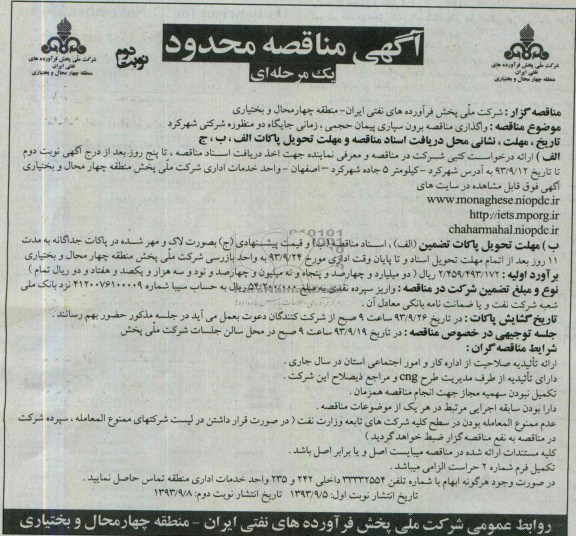 آگهی مناقصه محدود
یک مرحله‌ای
نوبت دوم
شرکت ملی پخش فرآورده های
نفتی ایران
منطقه چهار محال و بختیاری
شرکت ملی پخش فرآورده های
نفتی ایران
منطقه چهار محال و بختیاری
مناقصه گزار : شرکت ملّی پخش فرآورده های نفتی ایران- منطقه چهارمحال و بختیاری
موضوع مناقصه : واگذاری مناقصه برون سپاری پیمان حجمی ، زمانی جایگاه دو منظوره شرکتی شهرکرد
تاریخ ، مهلت ، نشانی محل دریافت اسناد مناقصه و مهلت تحویل پاکات الف ، ب ، ج
الف ) ارائه درخواست کتبی شرکت در مناقصه و معرفی نماینده جهت اخذ دریافت اسناد مناقصه ، تا پنج روز بعد از درج آگهی نوبت دوم
تا تاریخ ۹۳/۹/۱۲ به آدرس شهرکرد -کیلومتر ۵ جاده شهرکرد - اصفهان - واحد خدمات اداری شرکت ملّی پخش منطقه چهار محال و بختیاری
آگهی فوق قابل مشاهده در سایت های
www.monaghese.niopdc.ir
http://iets.mporg.ir
chaharmahal.niopdc.ir
ب ) مهلت تحویل پاکات تضمین (الف) ، اسناد مناقصه (ب) و قیمت پیشنهادی (ج) بصورت لاک و مهر شده در پاکات جداگانه به مدت
۱۱ روز بعد از اتمام مهلت تحویل اسناد و تا پایان وقت اداری مورخ ۹۳/۹/۲۴ به واحد بازرسی شرکت ملّی پخش منطقه چهار محال و بختیاری
برآورد اولیه : ۲/۴۵۹/۴۹۳/۱۷۲ ریال ( دو میلیارد و چهارصد و پنجاه و نه میلیون و چهارصد و نود و سه هزار و یکصد و هفتاد و دو ریال تمام )
نوع و مبلغ تضمین شرکت در مناقصه : واریز سپرده نقدی به مبلغ ریال به حساب سیبا شماره نزد بانک ملی
شعبه شرکت نفت و یا ضمانت نامه بانکی معادل آن .
تاریخ گشایش پاکات : در تاریخ ۹۳/۹/۲۶ ساعت ۹ صبح از شرکت کنندگان دعوت بعمل می آید در جلسه مذکور حضور بهم رسانند .
جلسه توجیهی در خصوص مناقصه : در تاریخ ۹۳/۹/۱۹ ساعت ۹ صبح در محل سالن جلسات شرکت ملّی پخش
شرایط مناقصه گران :
ارائه تأئیدیه صلاحیت از اداره کار و امور اجتماعی استان در سال جاری .
دارای تأئیدیه از طرف مدیریت طرح cng و مراجع ذیصلاح این شرکت .
تکمیل نبودن سهمیه مجاز جهت انجام مناقصه همزمان .
دارا بودن سابقه اجرایی مرتبط در هر یک از موضوعات مناقصه .
عدم ممنوع المعامله بودن در سطح کلیه شرکت های تابعه وزارت نفت ( در صورت قرار داشتن در لیست شرکتهای ممنوع المعامله ، سپرده شرکت
در مناقصه به نفع مناقصه گزار ضبط خواهد گردید )
کلیه مستندات ارائه شده در مناقصه میبایست اصل و یا برابر اصل باشد .
تکمیل فرم شماره ۲ حراست الزامی میباشد .
در صورت وجود هرگونه ابهام با شماره تلفن ۳۳۳۳۲۵۵۴ داخلی ۲۴۲ و ۲۳۵ واحد خدمات اداری منطقه تماس حاصل نمایید .
تاریخ انتشار نوبت اول: ۱۳۹۳/۹/۵ تاریخ انتشار نوبت دوم: ۱۳۹۳/۹/۸
روابط عمومی شرکت ملّی پخش فرآورده های نفتی ایران - منطقه چهارمحال و بختیاری